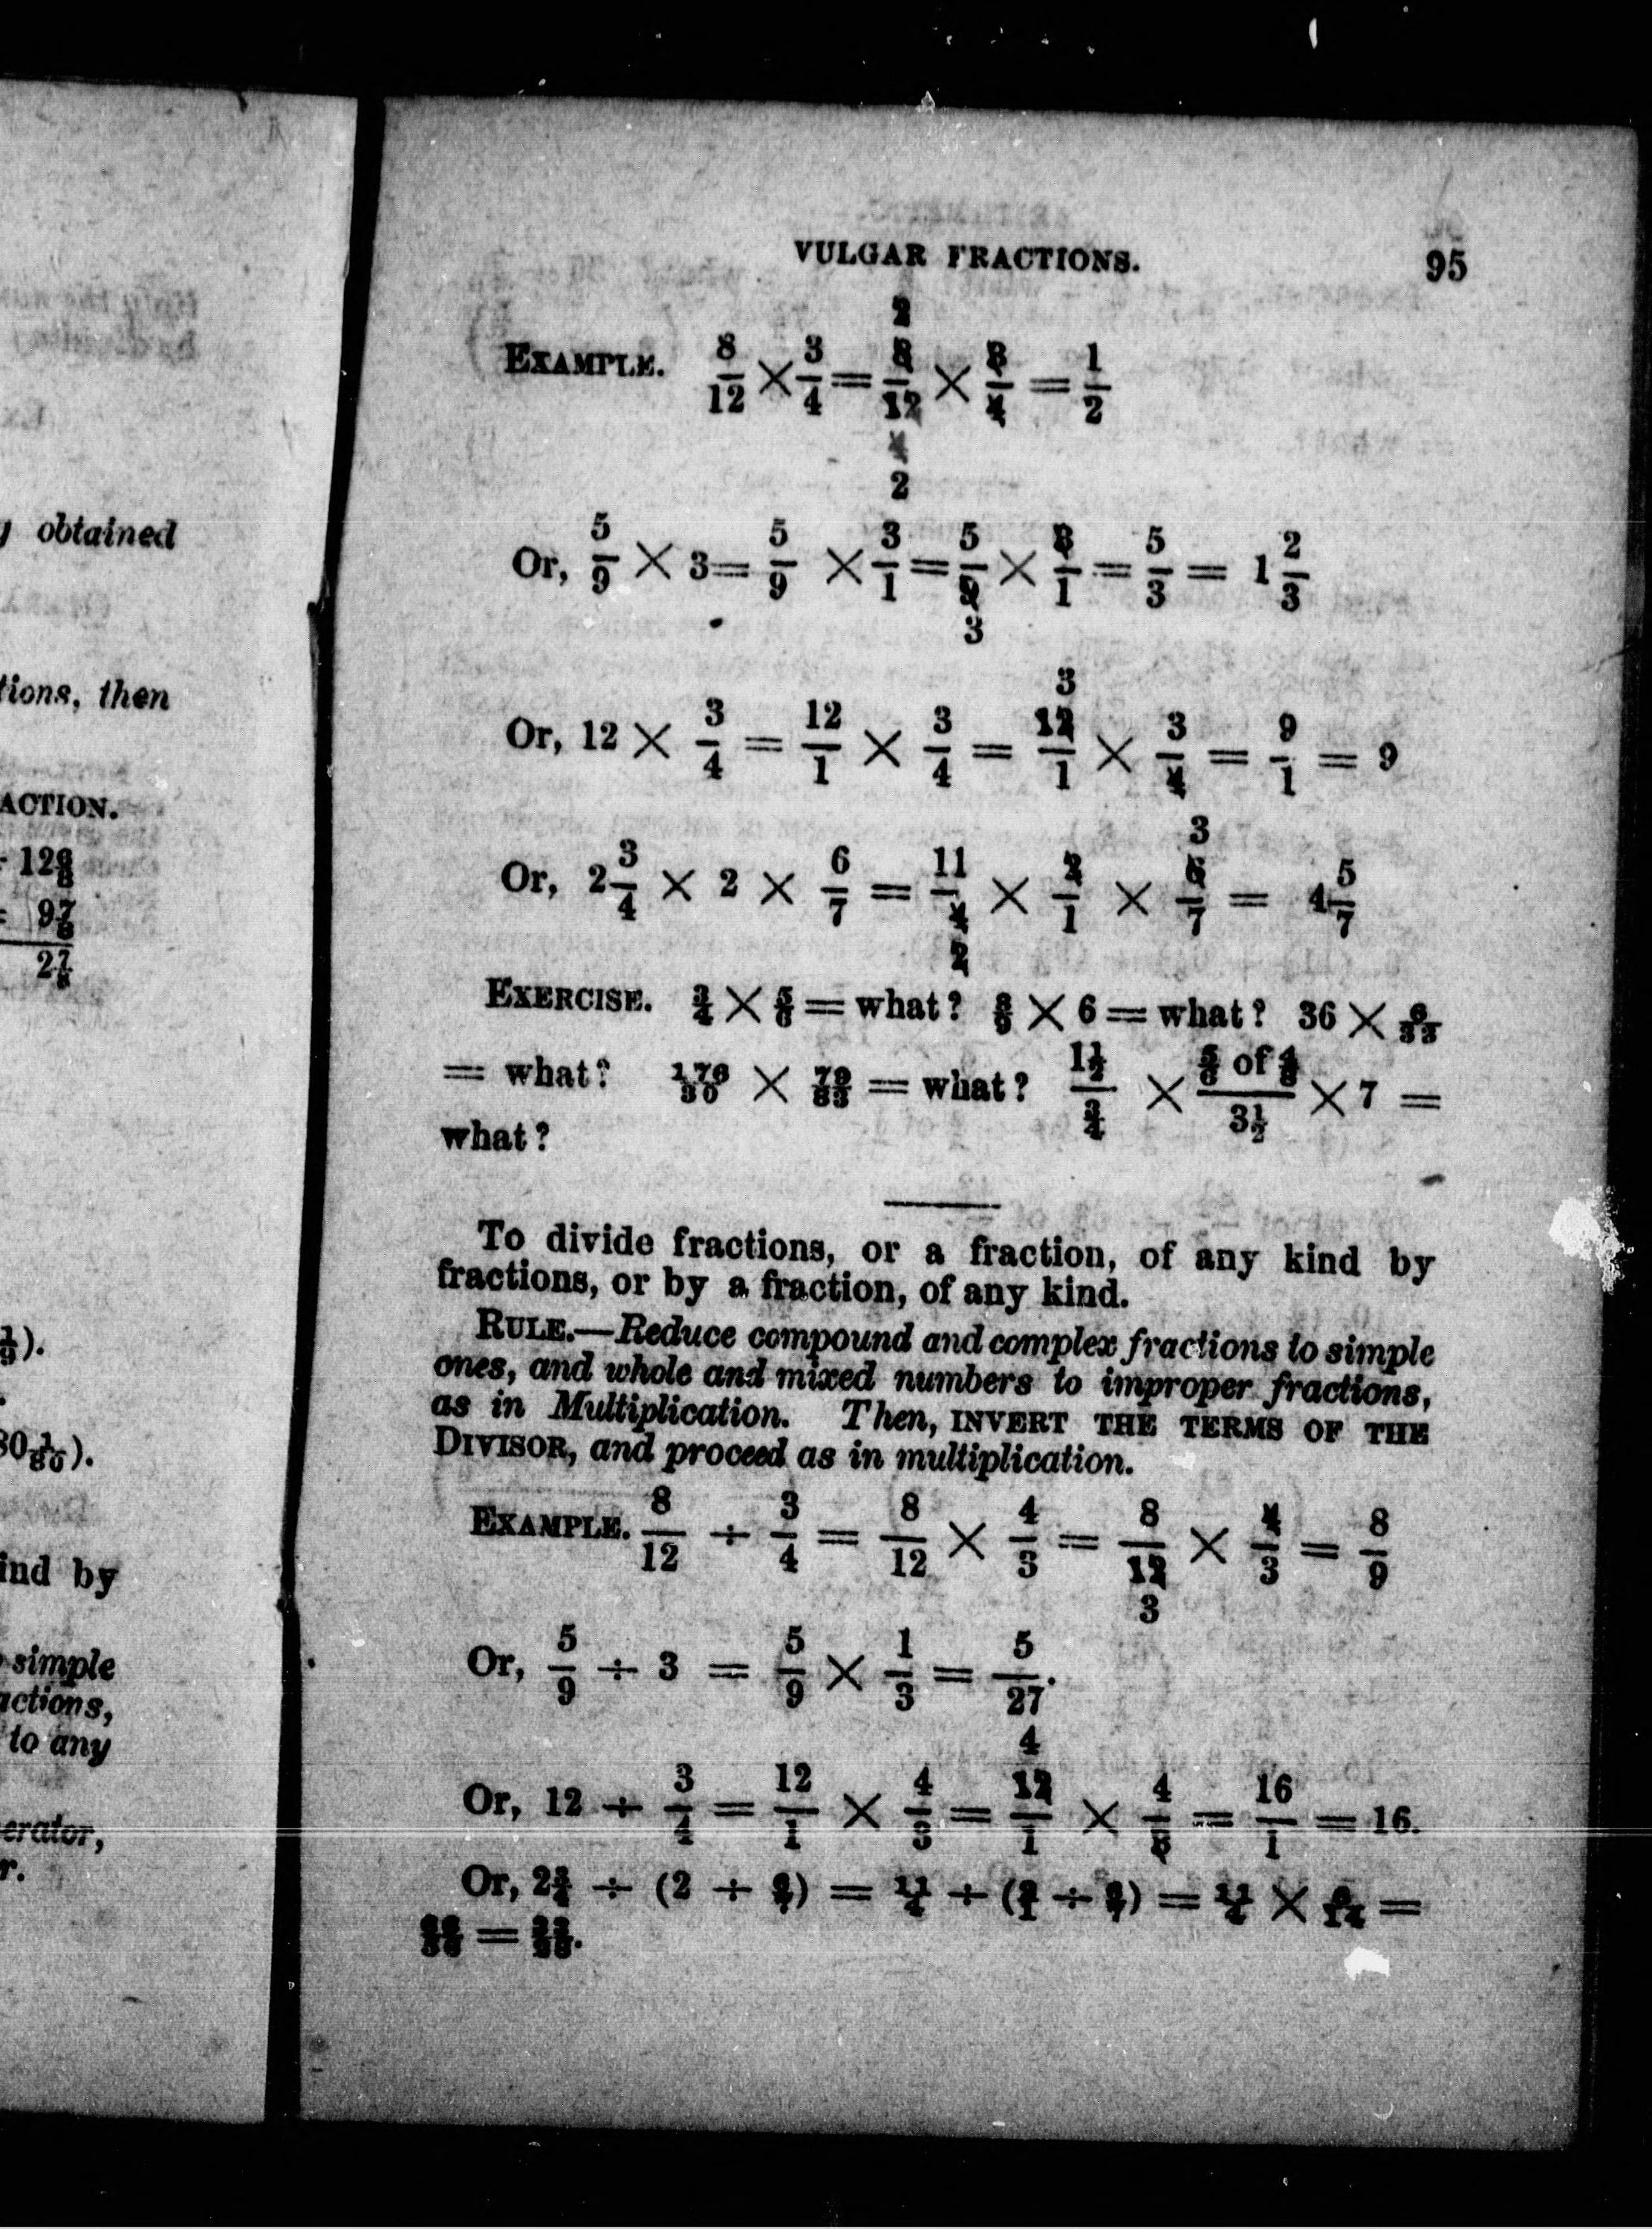 y obtained
tions, then
ACTION.
2⅞
ind by
simple
actions,
to any
erator,
r.
VULGAR FRACTIONS. 95
2
EXAMPLE. 8/12 × 3/4 = 8/12 × 3/4 = 1/2
4
2
Or, 5/9 × 3 = 5/9 × 3/1 = 5/9 × 3/1 = 5/3 = 1 2/3
3
3
Or, 12 × 3/4 = 12/1 × 3/4 = 12/1 × 3/4 = 9/1 = 9
3
Or, 2 3/4 × 2 × 6/7 = 11/4 × 2/1 × 6/7 = 4 5/7
2
EXERCISE. 3/4 × 5/6 = what? 8/9 × 6 = what? 36 × 6/33
= what? 176/30 × 79/83 = what? 1½/¾ × 5/6 of 4/8 / 3½ × 7 =
what?
To divide fractions, or a fraction, of any kind by
fractions, or by a fraction, of any kind.
RULE.—Reduce compound and complex fractions to simple
ones, and whole and mixed numbers to improper fractions,
as in Multiplication. Then, INVERT THE TERMS OF THE
DIVISOR, and proceed as in multiplication.
EXAMPLE. 8/12 ÷ 3/4 = 8/12 × 4/3 = 8/12 × 4/3 = 8/9
3
Or, 5/9 ÷ 3 = 5/9 × 1/3 = 5/27.
4
Or, 12 ÷ 3/4 = 12/1 × 4/3 = 12/1 × 4/3 = 16/1 = 16.
Or, 2¾ ÷ (2 ÷ 6/7) = 11/4 ÷ (2/1 ÷ 6/7) = 11/4 × 6/14 =